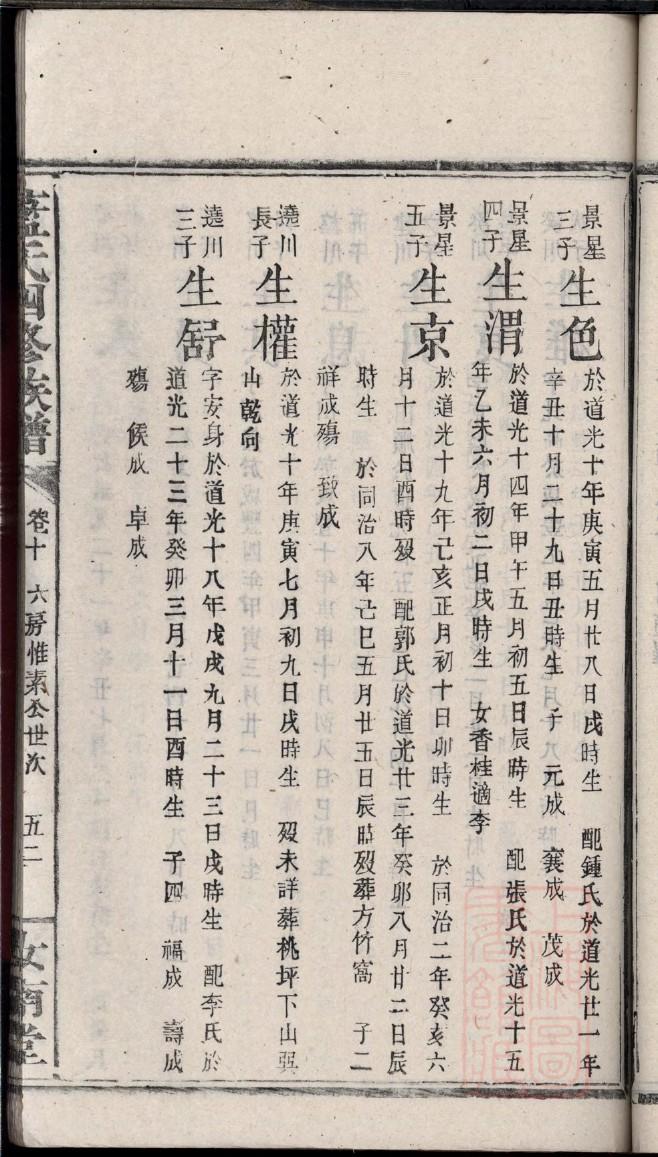 景星三子 生色 於道光十年庚寅五月廿八日戌時生 配鍾氏於道光廿一年
辛丑十月二十九日丑時生 子 元成 襄成 茂成
景星四子 生渭 於道光十四年甲午五月初五日辰時生 配張氏於道光十五
年乙未六月初二日戌時生 女香桂適李
景星五子 生京 於道光十九年己亥正月初十日卯時生 於同治二年癸亥六
月十二日酉時歿 配郭氏於道光廿三年癸卯八月廿二日辰
時生 於同治八年己巳五月廿五日辰時歿葬方竹窩 子二
祥成殤 致成
遶川長子 生權 於道光十年庚寅七月初九日戌時生 歿未詳葬桃坪下山巽
山乾向
遶川三子 生舒 字安身於道光十八年戊戌九月二十三日戌時生 配李氏於
道光二十三年癸卯三月十一日酉時生 子四 福成 壽成
殤 侯成 卓成
藍氏四修族譜 卷十 六房惟素公世次 五二 汝南堂